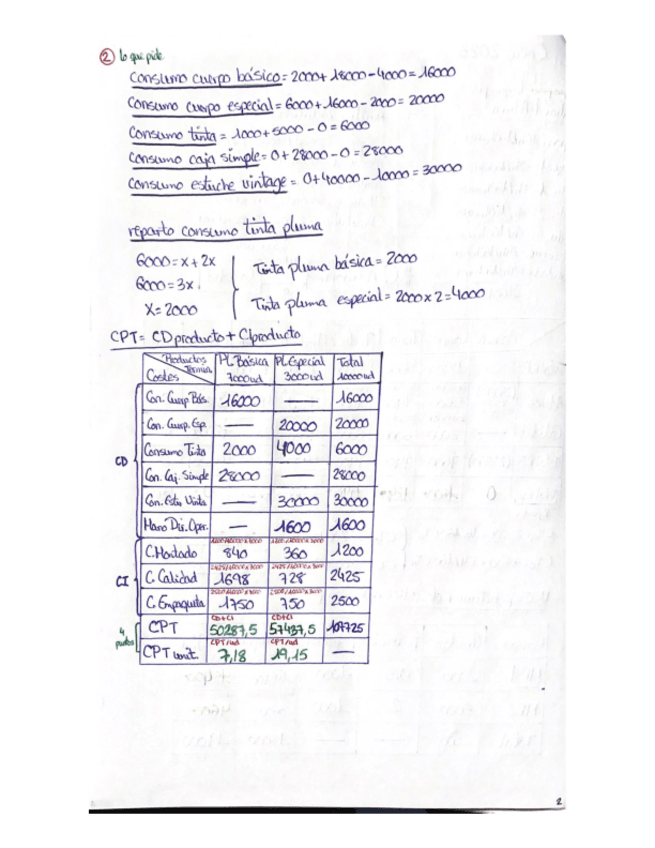 ② lo que pide
Consumo cuerpo básico = 2000 + 18000 - 4000 = 16000
Consumo cuerpo especial = 6000 + 16000 - 2000 = 20000
Consumo tinta = 1000 + 5000 - 0 = 6000
Consumo caja simple = 0 + 28000 - 0 = 28000
Consumo estuche vintage = 0 + 40000 - 10000 = 30000
reparto consumo tinta pluma
6000 = x + 2x
6000 = 3x
X = 2000
Tinta pluma básica = 2000
Tinta pluma especial = 2000 x 2 = 4000
CPT = CD producto + CI producto
Costes Productos Termin. PL Básica 7000 ud PL Especial 3000 ud Total 10000 ud
CD
Con. Cuerp Bás. 16000 — 16000
Con. Cuerp. Esp. — 20000 20000
Consumo Tinta 2000 4000 6000
Con. Caj. Simple 28000 — 28000
Con. Estu. Vinta — 30000 30000
Mano Di. Oper. — 1600 1600
CI
1200/10000 x 7000 1200/10000 x 3000
C. Montado 840 360 1200
2425/10000 x 7000 2425/10000 x 3000
C. Calidad 1698 728 2425
2500/10000 x 7000 2500/10000 x 3000
C. Empaqueta 1750 750 2500
4 puntos
CD+CI CD+CI
CPT 50287,5 57437,5 107725
CPT/ud CPT/ud
CPT unit. 7,18 19,15 —
2